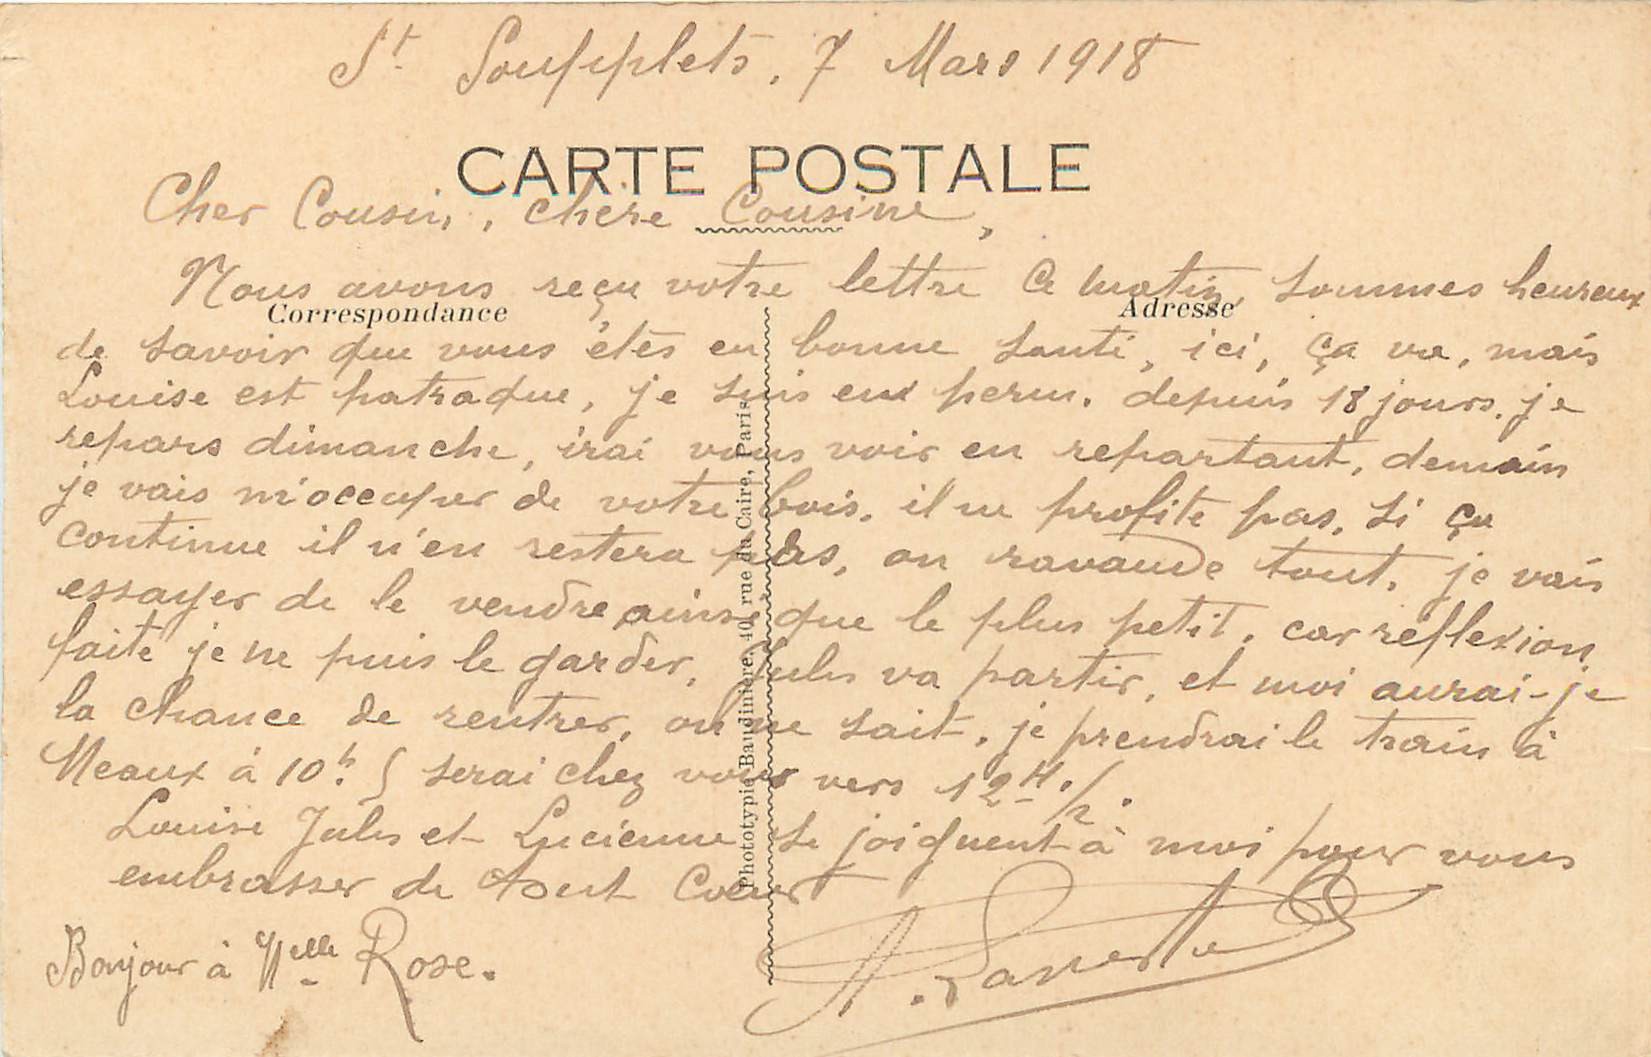 St Soupplets, 7 Mars 1918
CARTE POSTALE
Cher Cousin, chère Cousine,
Nous avons reçu votre lettre ce matin, sommes heureux
Correspondance
Adresse
de savoir que vous êtes en bonne santé, ici, ça va, mais
Louise est patraque, je suis en perm. depuis 18 jours. je
repars dimanche, irai vous voir en repartant, demain
je vais m'occuper de votre bois. il ne profite pas, si ça
continue il n'en restera pas, on ravaude tout, je vais
essayer de le vendre ainsi que le plus petit. car réflexion
faite je ne puis le garder, Jules va partir, et moi aurai-je
la chance de rentrer, on ne sait, je prendrai le train à
Meaux à 10h. serai chez vous vers 12H.1/2.
Louise Jules et Lucienne se joignent à moi pour vous
embrasser de tout Coeur
Bonjour à Melle Rose.
Phototypie Baudinière, 40, rue du Caire, Paris